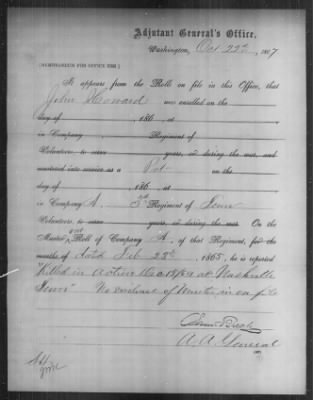 Adjutant General's Office,
Washington, Oct 22d, 1867
[MEMORANDUM FOR OFFICE USE.]
It appears from the Roll on file in this Office, that
John Howard was enrolled on the
day of , 186 ,
in Company , Regiment of
Volunteers, to serve years, or during the war, and
mustered into service as a Pvt on the
day of , 186 ,
in Company A. 3d Regiment of Tenn
Volunteers, to serve years, or during the war. On the
Muster Roll of Company A, of that Regiment, for the
months of dated Feb 28th, 1865, he is reported
"Killed in action at Nashville
Tenn" No evidence of Muster in on file
A. A. General